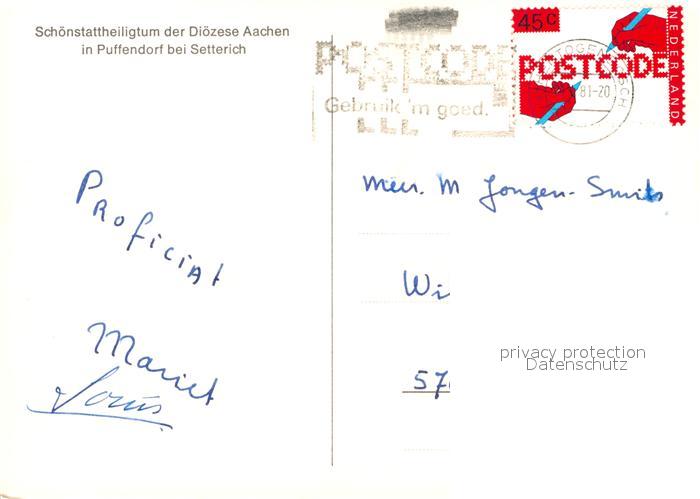 Schönstattheiligtum der Diözese Aachen
in Puffendorf bei Setterich
POSTCODE
Gebruik 'm goed.
45c
NEDERLAND
POSTCODE
81-20
Proficiat
Mariet
Mevr. M Jongen-Smits
Wi
57
privacy protection
Datenschutz